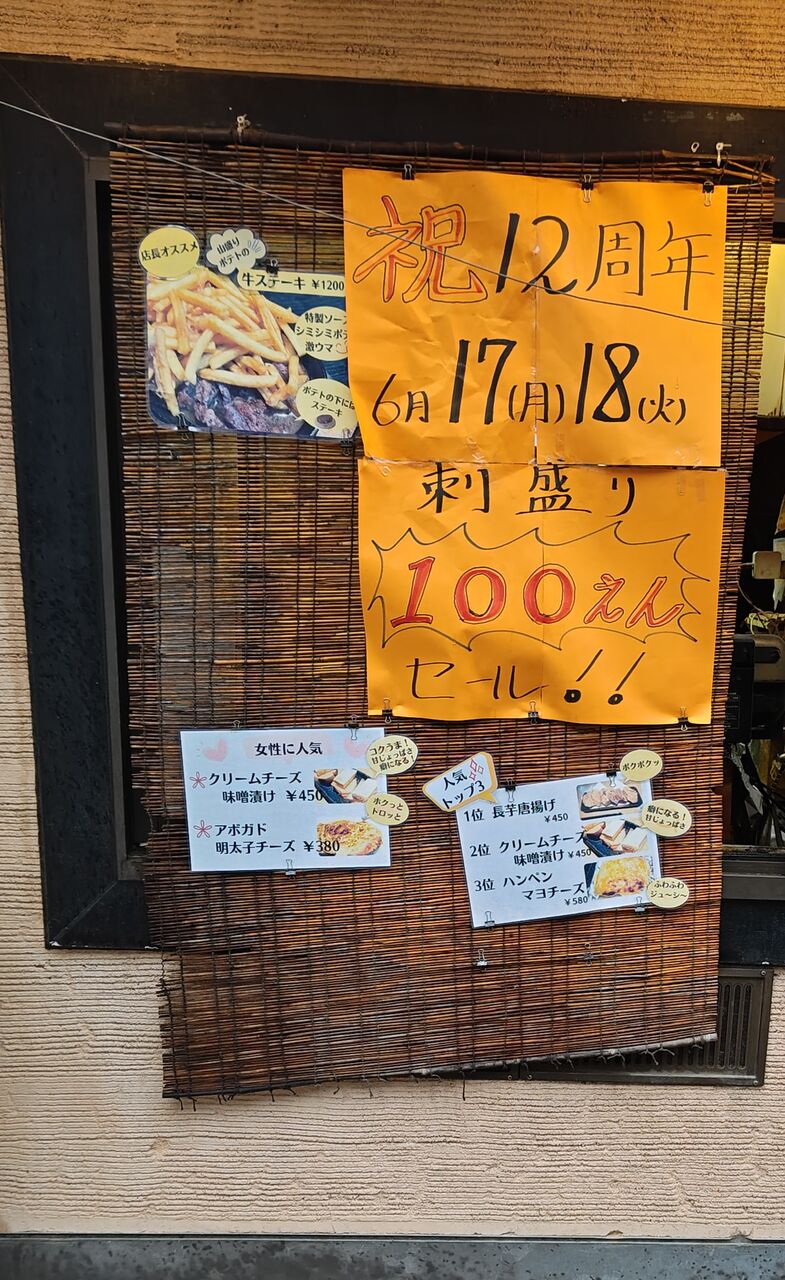 店長オススメ
山盛り
ポテトの
牛ステーキ ¥1200
特製ソース
シミシミポテ
激ウマ
ポテトの下には
ステーキ
祝12周年
6月17(月)18(火)
刺盛り
100えん
セール!!
女性に人気
クリームチーズ
味噌漬け ¥450
アボガド
明太子チーズ ¥380
コクうま!
甘じょっぱさ
癖になる!
ホクっと
トロッと
人気
トップ3
1位 長芋唐揚げ
¥450
2位 クリームチーズ
味噌漬け ¥450
3位 ハンペン
マヨチーズ
¥580
ポクポクッ
癖になる!
甘じょっぱさ
ふわふわ
ジュ〜シ〜